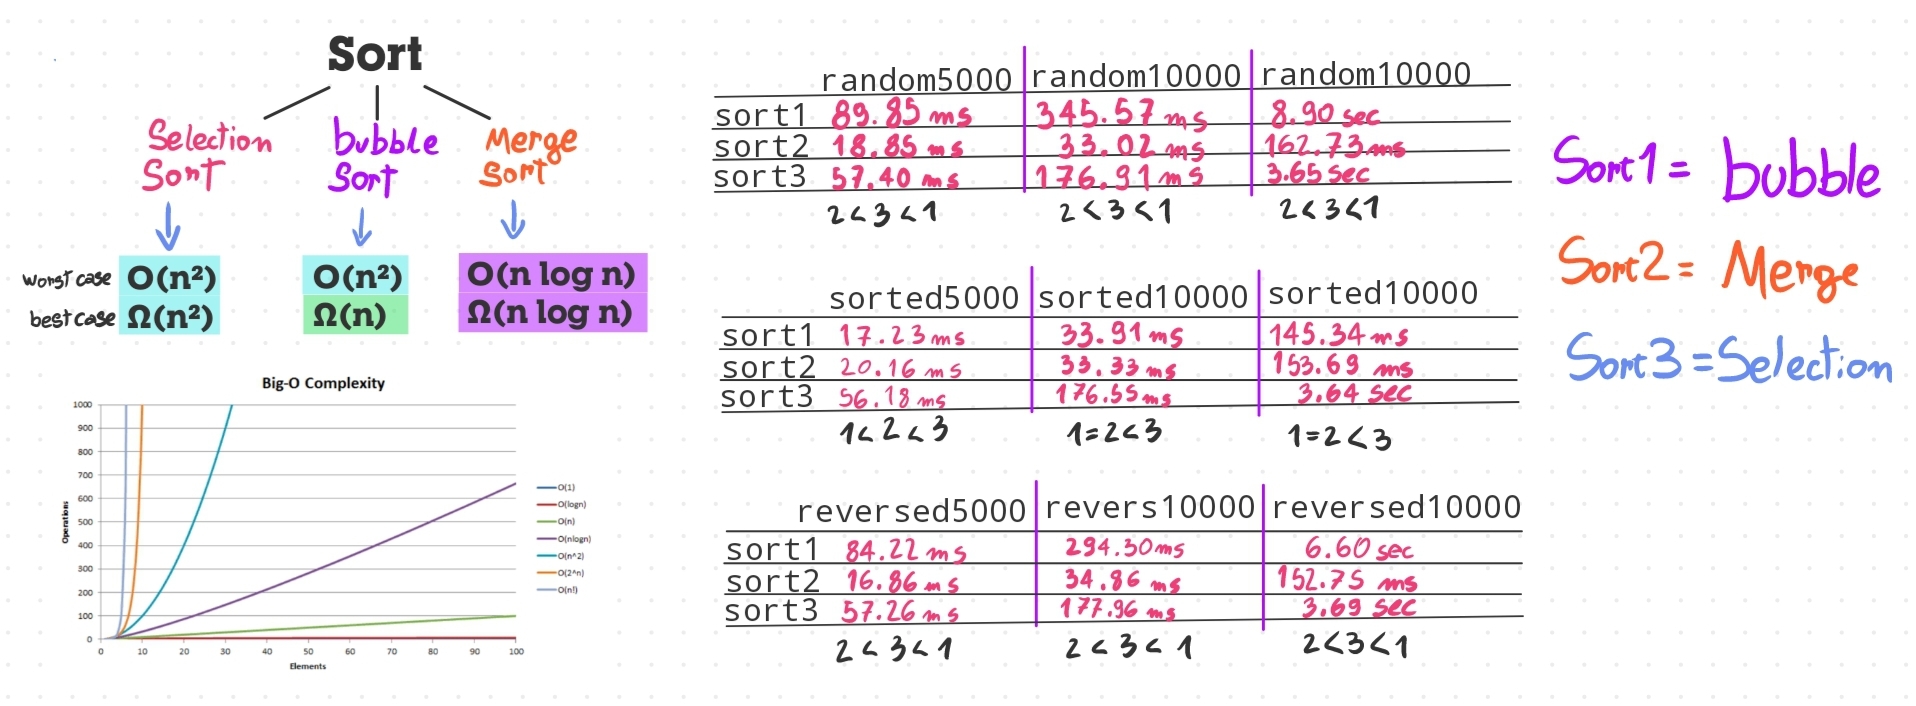 Sort
Selection Sort
bubble Sort
Merge Sort
worst case O(n²) O(n²) O(n log n)
best case Ω(n²) Ω(n) Ω(n log n)
Big-O Complexity
Operations
1000
900
800
700
600
500
400
300
200
100
0
0 10 20 30 40 50 60 70 80 90 100
Elements
O(1)
O(logn)
O(n)
O(nlogn)
O(n^2)
O(2^n)
O(n!)
random5000 random10000 random10000
sort1 89.85 ms 345.57 ms 8.90 sec
sort2 18.85 ms 33.02 ms 162.73 ms
sort3 57.40 ms 176.91 ms 3.65 sec
2<3<1 2<3<1 2<3<1
sorted5000 sorted10000 sorted10000
sort1 17.23 ms 33.91 ms 145.34 ms
sort2 20.16 ms 33.33 ms 153.69 ms
sort3 56.18 ms 176.55 ms 3.64 sec
1<2<3 1=2<3 1=2<3
reversed5000 revers10000 reversed10000
sort1 84.22 ms 294.30 ms 6.60 sec
sort2 16.86 ms 34.86 ms 152.75 ms
sort3 57.26 ms 177.96 ms 3.69 sec
2<3<1 2<3<1 2<3<1
Sort1 = bubble
Sort2 = Merge
Sort3 = Selection